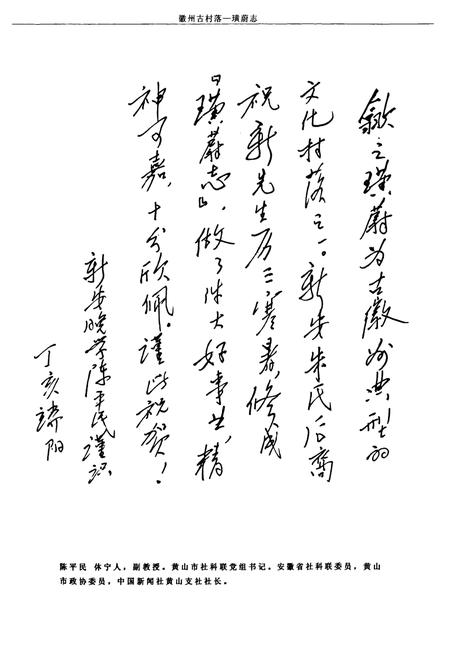 徽州古村落—璜蔚志
歙之璜蔚为古徽州典型的
文化村落之一。新安朱氏后裔
祝新先生历三寒暑，修成
《璜蔚志》，做了件大好事业，精
神可嘉，十分欣佩。谨此祝贺！
新安晚学陈平民谨识
丁亥端阳
陈平民 休宁人，副教授。黄山市社科联党组书记。安徽省社科联委员，黄山
市政协委员，中国新闻社黄山支社社长。